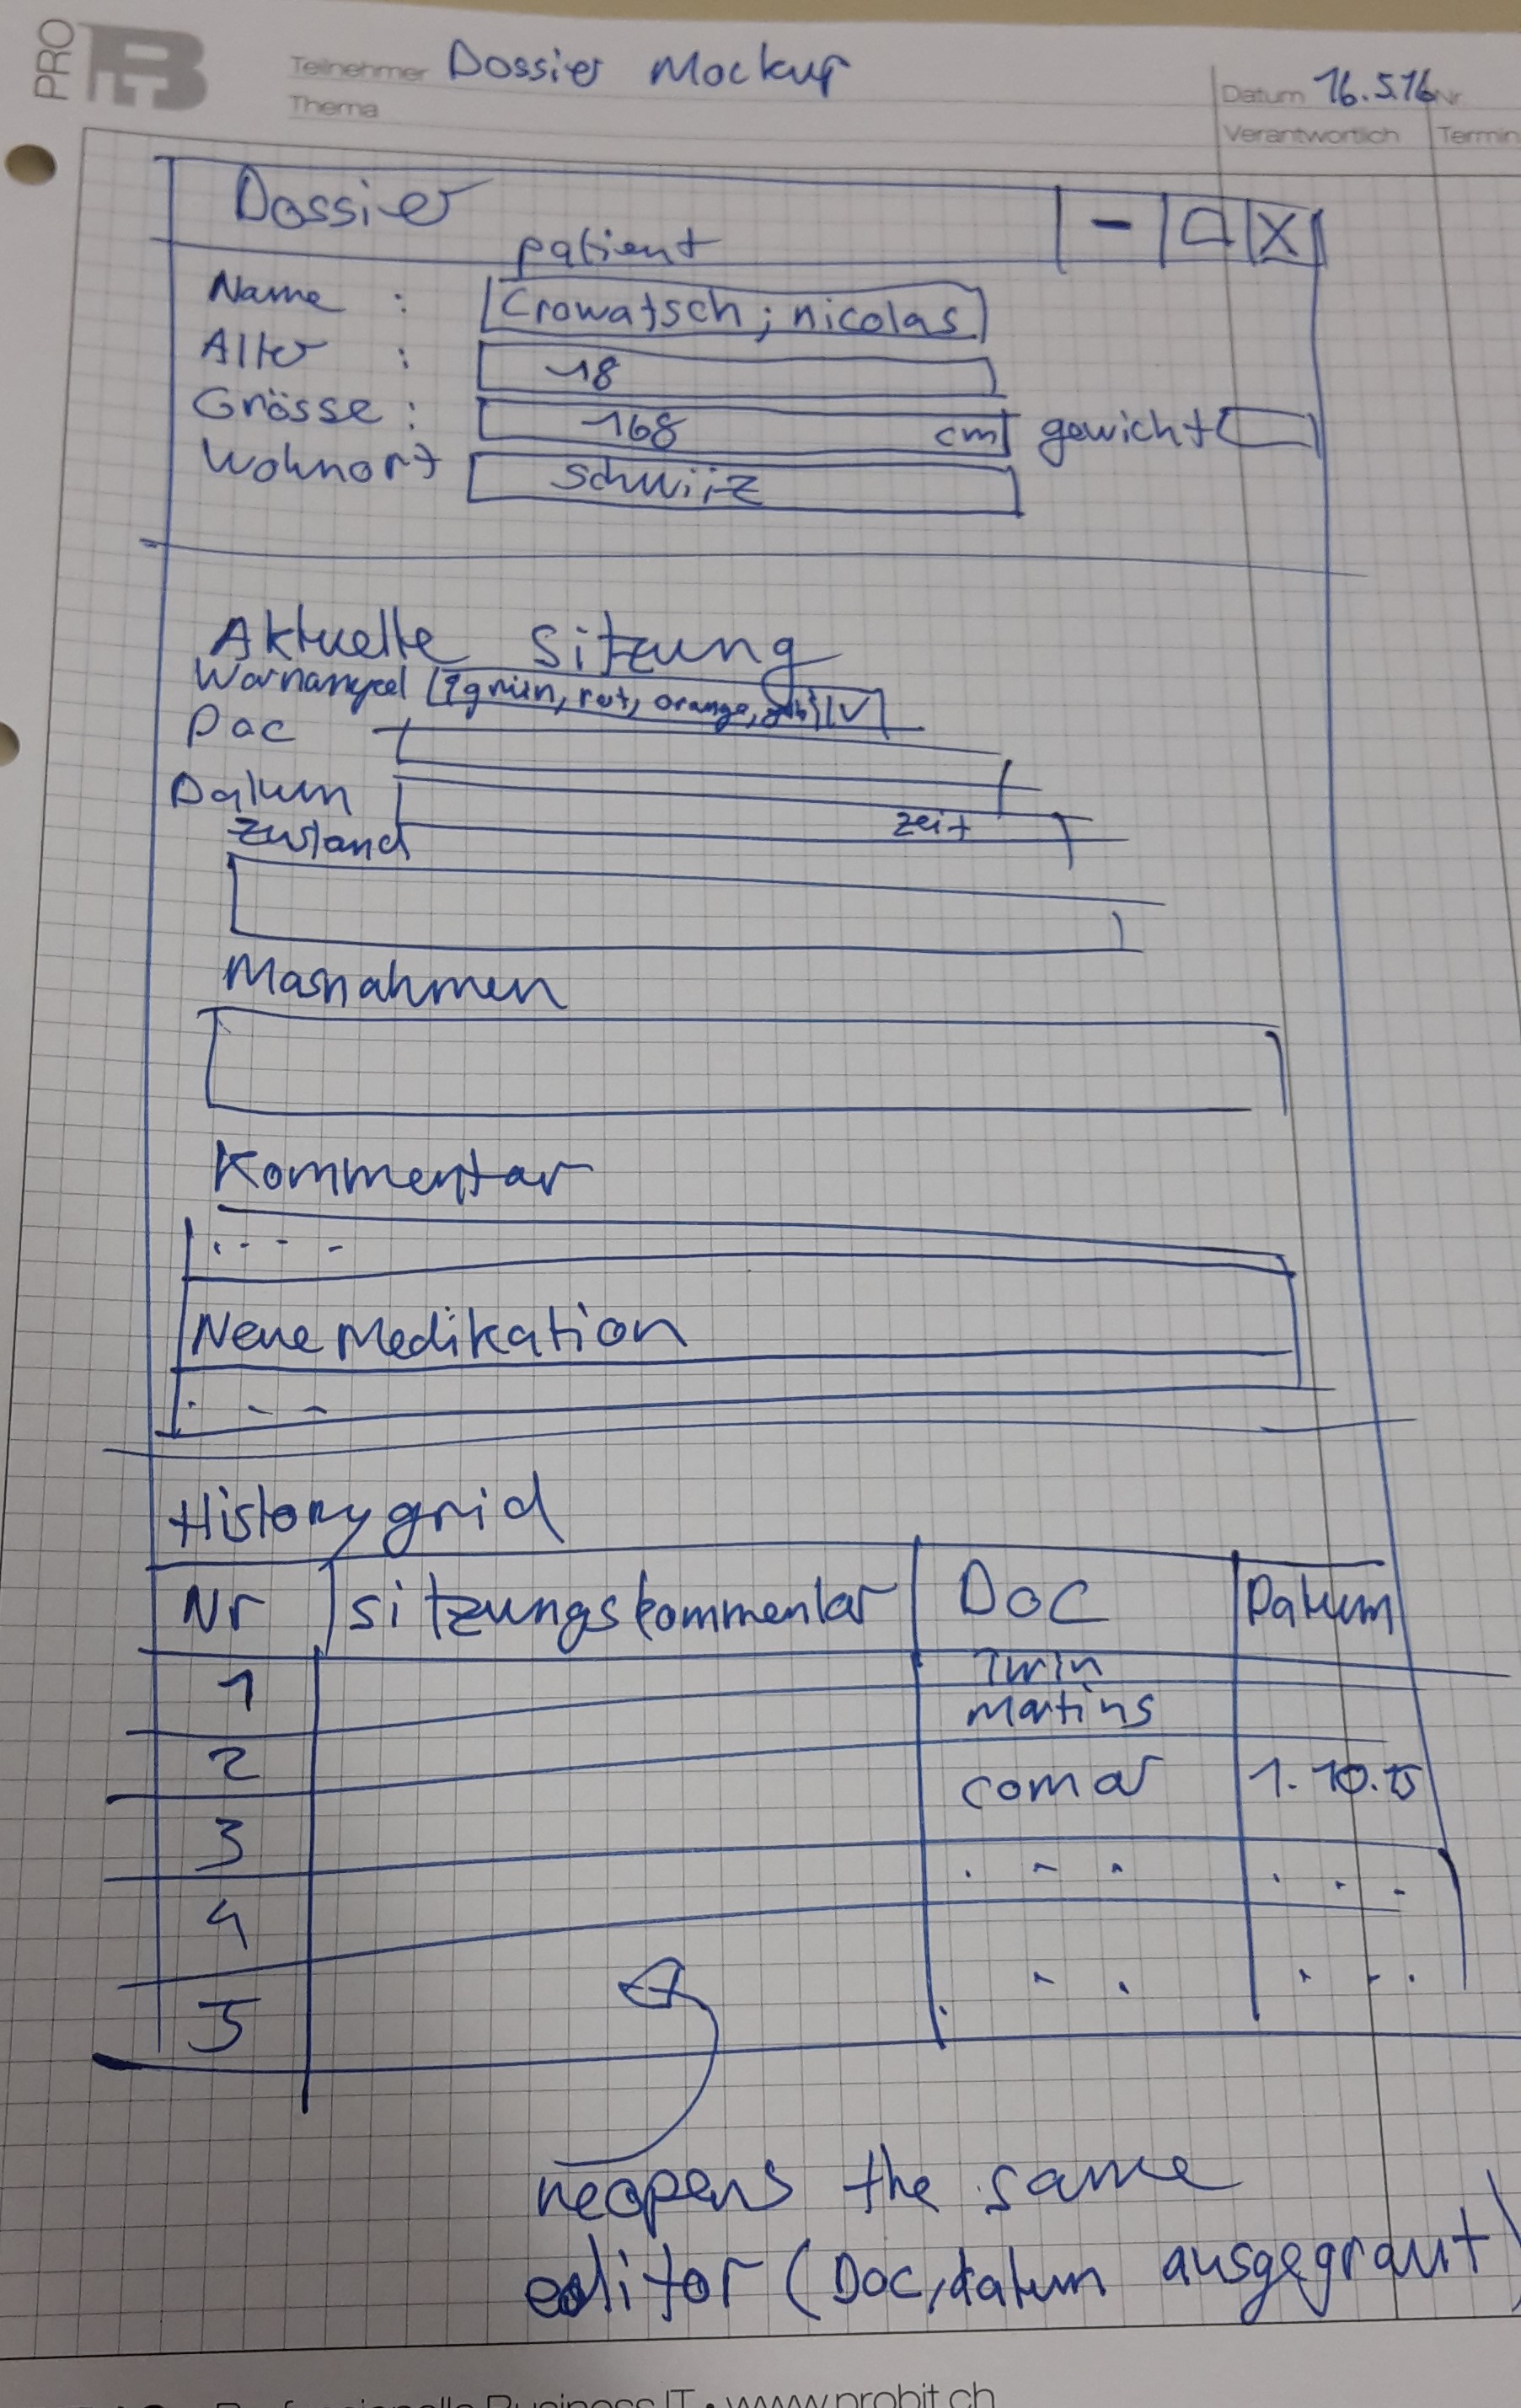 PRO
Teilnehmer Dossier Mockup
Thema
Datum 16.5.16 Nr.
Verantwortlich Termin
Dossier - X
patient
Name : Crowatsch ; nicolas
Alter : 18
Grösse : 168 cm gewicht
Wohnort Schwiiz
Aktuelle Sitzung
Warnampel grün, rot, orange, gelb V
Doc
Datum Zeit
Zustand
Masnahmen
Kommentar
Neue Medikation
History grid
Nr Sitzungskommentar DOC Datum
1 Irwin
Martins
2 comar 1.10.15
3
4
5
reopens the same
editor (Doc, datum ausgegraut)
Professionelle Business IT • www.probit.ch